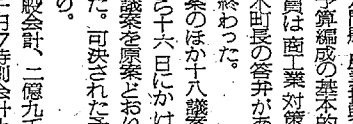 算編成の基本的
員は商工業対策
町長の答弁があ
終わった。
案のほか十八議案
ら十六日にかけ
議案を原案どおり
た。可決された
の。
般会計、二億九
特別会計